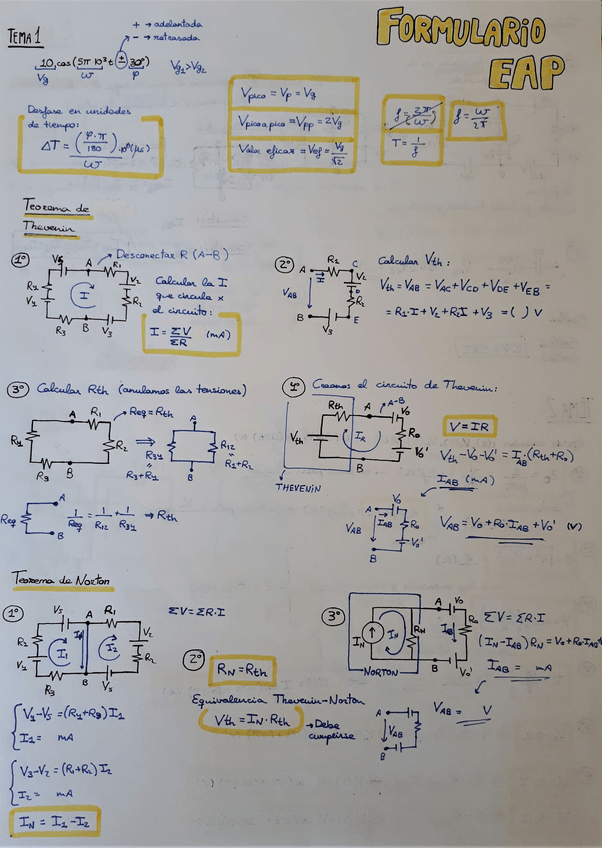 FORMULARIO
EAP
TEMA 1
+ → adelantada
- → retrasada
10 cos (5π 10³ t ± 30°)
Vg w φ
Vg1 > Vg2
Desfase en unidades
de tiempo:
ΔT = (φ·π/180)/w · 10⁶ (μs)
Vpico = Vp = Vg
Vpico a pico = Vpp = 2Vg
Valor eficaz = Vef = Vg/√2
f = 2π/(w)
T = 1/f
f = w/2π
Teorema de
Thevenin
1º
Desconectar R (A-B)
A R1
V2
R2
V1
R3 B V3
I
Calcular la I
que circula x
el circuito:
I = ΣV/ΣR (mA)
2º
A R1 C
I
V2
D
R2
VAB
B V3 E
Calcular Vth:
Vth = VAB = VAC + VCD + VDE + VEB =
= R1·I + V2 + R2I + V3 = ( ) V
3º Calcular Rth (anulamos las tensiones)
A R1
Req = Rth
R4 R2
R3 B
⇒
A
R34 R12
R3+R4 R1+R2
B
Req A B
1/Req = 1/R12 + 1/R34 ⇒ Rth
4º Creamos el circuito de Thevenin:
Rth A A-B Vo
Vth IR Ro
B Vo'
THEVENIN
V = IR
Vth - Vo - Vo' = IAB·(Rth + Ro)
IAB (mA)
A Vo
VAB IAB Ro
B Vo'
VAB = Vo + Ro·IAB + Vo' (V)
Teorema de Norton
1º
V5 A R1
V2
I1 IN I2
V1 R2
R3 B V3
ΣV = ΣR·I
V4 - V5 = (R4 + R3) I1
I1 = mA
V3 - V2 = (R1 + R2) I2
I2 = mA
IN = I1 - I2
2º
RN = Rth
Equivalencia Thevenin-Norton
Vth = IN·Rth → Debe
cumplirse
3º
A Vo
IN IN RN IAB Ro
B Vo'
NORTON
ΣV = ΣR·I
(IN - IAB) RN = Vo + Ro·IAB +
IAB = mA
A
VAB
B
VAB = V